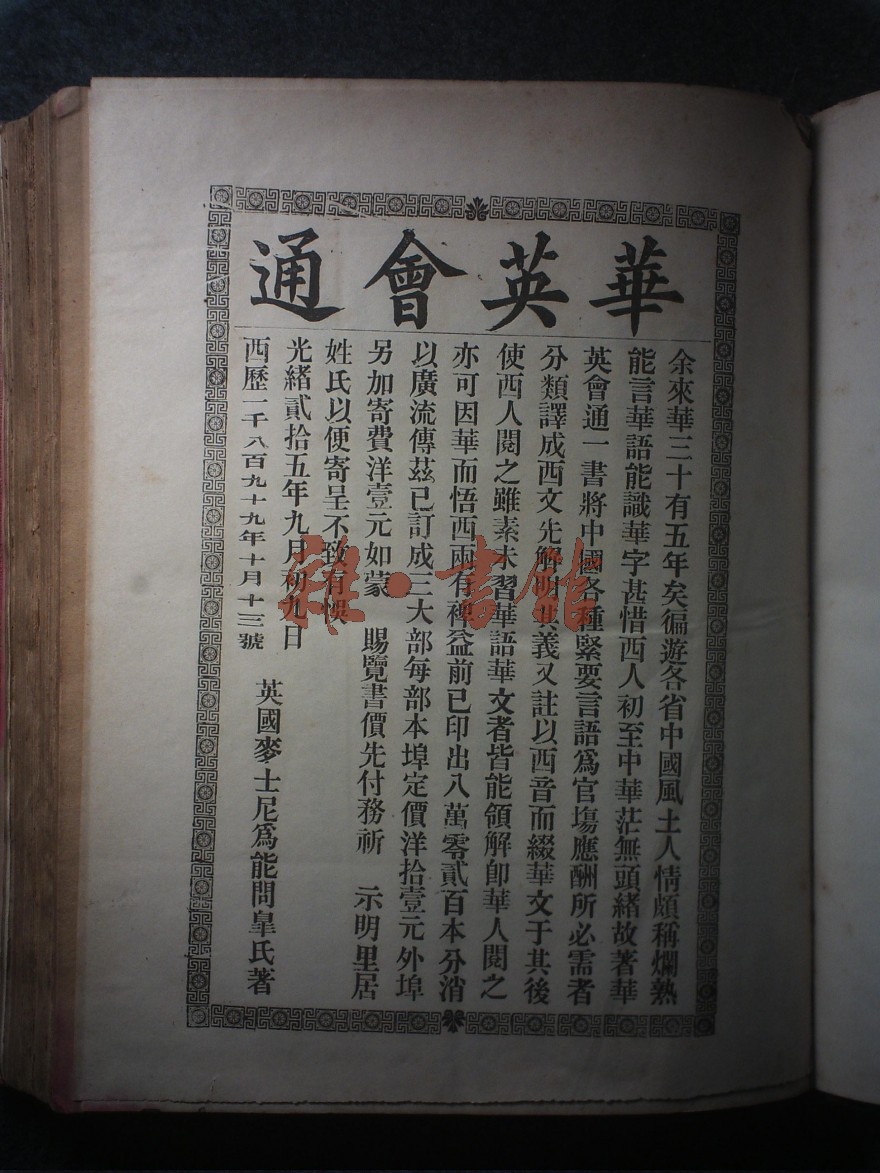 華英會通
余來華三十有五年矣徧遊各省中國風土人情頗稱爛熟
能言華語能識華字甚惜西人初至中華茫無頭緒故著華
英會通一書將中國各種緊要言語爲官塲應酬所必需者
分類譯成西文先解明其義又註以西音而綴華文于其後
使西人閱之雖素未習華語華文者皆能領解卽華人閱之
亦可因華而悟西兩有裨益前已印出八萬零貳百本分消
以廣流傳茲已訂成三大部每部本埠定價洋拾壹元外埠
另加寄費洋壹元如蒙 賜覽書價先付務祈 示明里居
姓氏以便寄呈不致有悞
光緒貳拾五年九月初九日
西歷一千八百九十九年十月十三號
英國麥士尼爲能問臯氏著
雜·書館